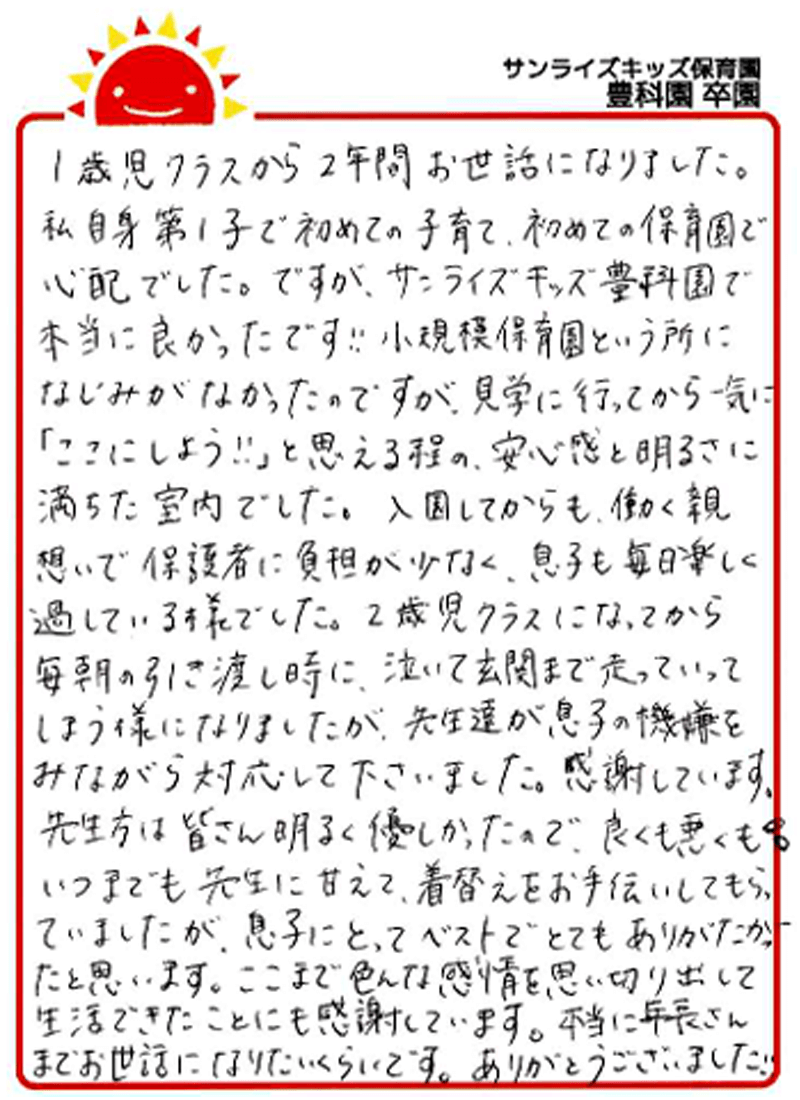 サンライズキッズ保育園
豊科園 卒園
1歳児クラスから2年間お世話になりました。
私自身第1子で初めての子育て、初めての保育園で
心配でした。ですが、サンライズキッズ豊科園で
本当に良かったです!!小規模保育園という所に
なじみがなかったのですが、見学に行ってから一気に
「ここにしよう!!」と思える程の、安心感と明るさに
満ちた室内でした。入園してからも、働く親
想いで保護者に負担が少なく、息子も毎日楽しく
過している様でした。2歳児クラスになってから
毎朝の引き渡し時に、泣いて玄関まで走っていって
しまう様になりましたが、先生達が息子の機嫌を
みながら対応して下さいました。感謝しています。
先生方は皆さん明るく優しかったので、良くも悪くも
いつまでも先生に甘えて、着替えをお手伝いしてもらっ
ていましたが、息子にとってベストでとてもありがたかっ
たと思います。ここまで色んな感情を思い切り出して
生活できたことにも感謝しています。本当に年長さん
までお世話になりたいくらいです。ありがとうございました!!